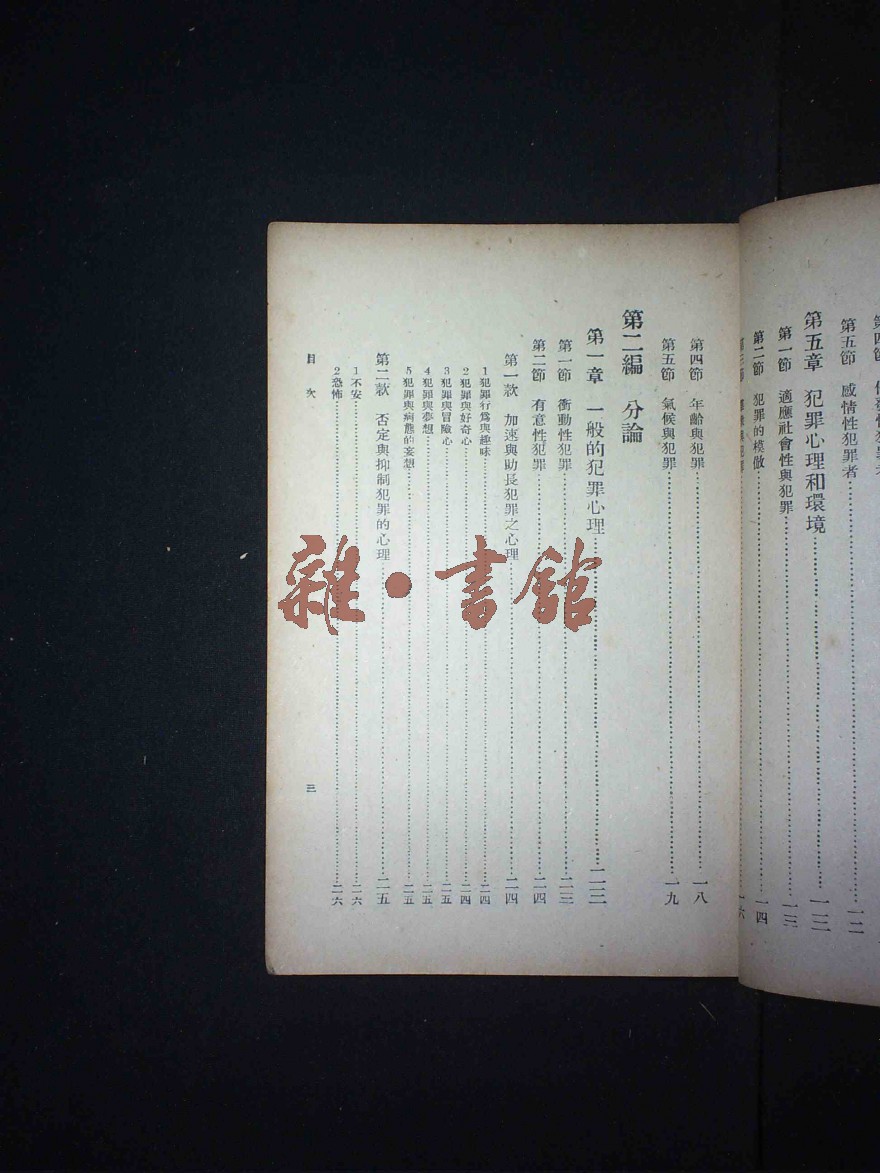 第五節 感情性犯罪者……一二
第五章 犯罪心理和環境……一三
第一節 適應社會性與犯罪……一三
第二節 犯罪的模倣……一四
一六
第四節 年齡與犯罪……一八
第五節 氣候與犯罪……一九
第二編 分論
第一章 一般的犯罪心理……二三
第一節 衝動性犯罪……二三
第二節 有意性犯罪……二四
第一款 加速與助長犯罪之心理……二四
1 犯罪行爲與趣味……二四
2 犯罪與好奇心……二四
3 犯罪與冒險心……二五
4 犯罪與夢想……二五
5 犯罪與病態的妄想……二五
第二款 否定與抑制犯罪的心理……二五
1 不安……二六
2 恐怖……二六
目次
三
雜·書館